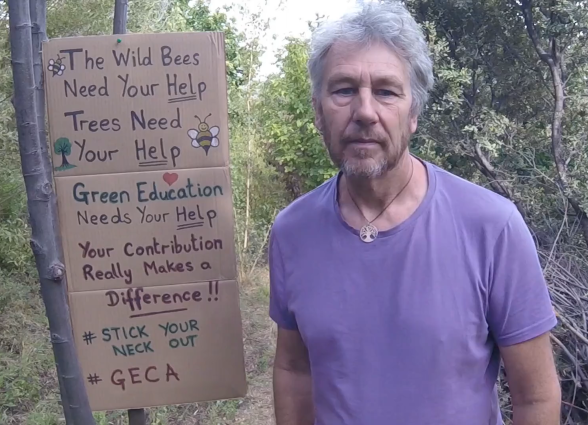 The Wild Bees
Need Your Help
Trees Need
Your Help
Green Education
Needs Your Help
Your Contribution
Really Makes a
Difference!!
# STICK YOUR
NECK OUT
# GECA